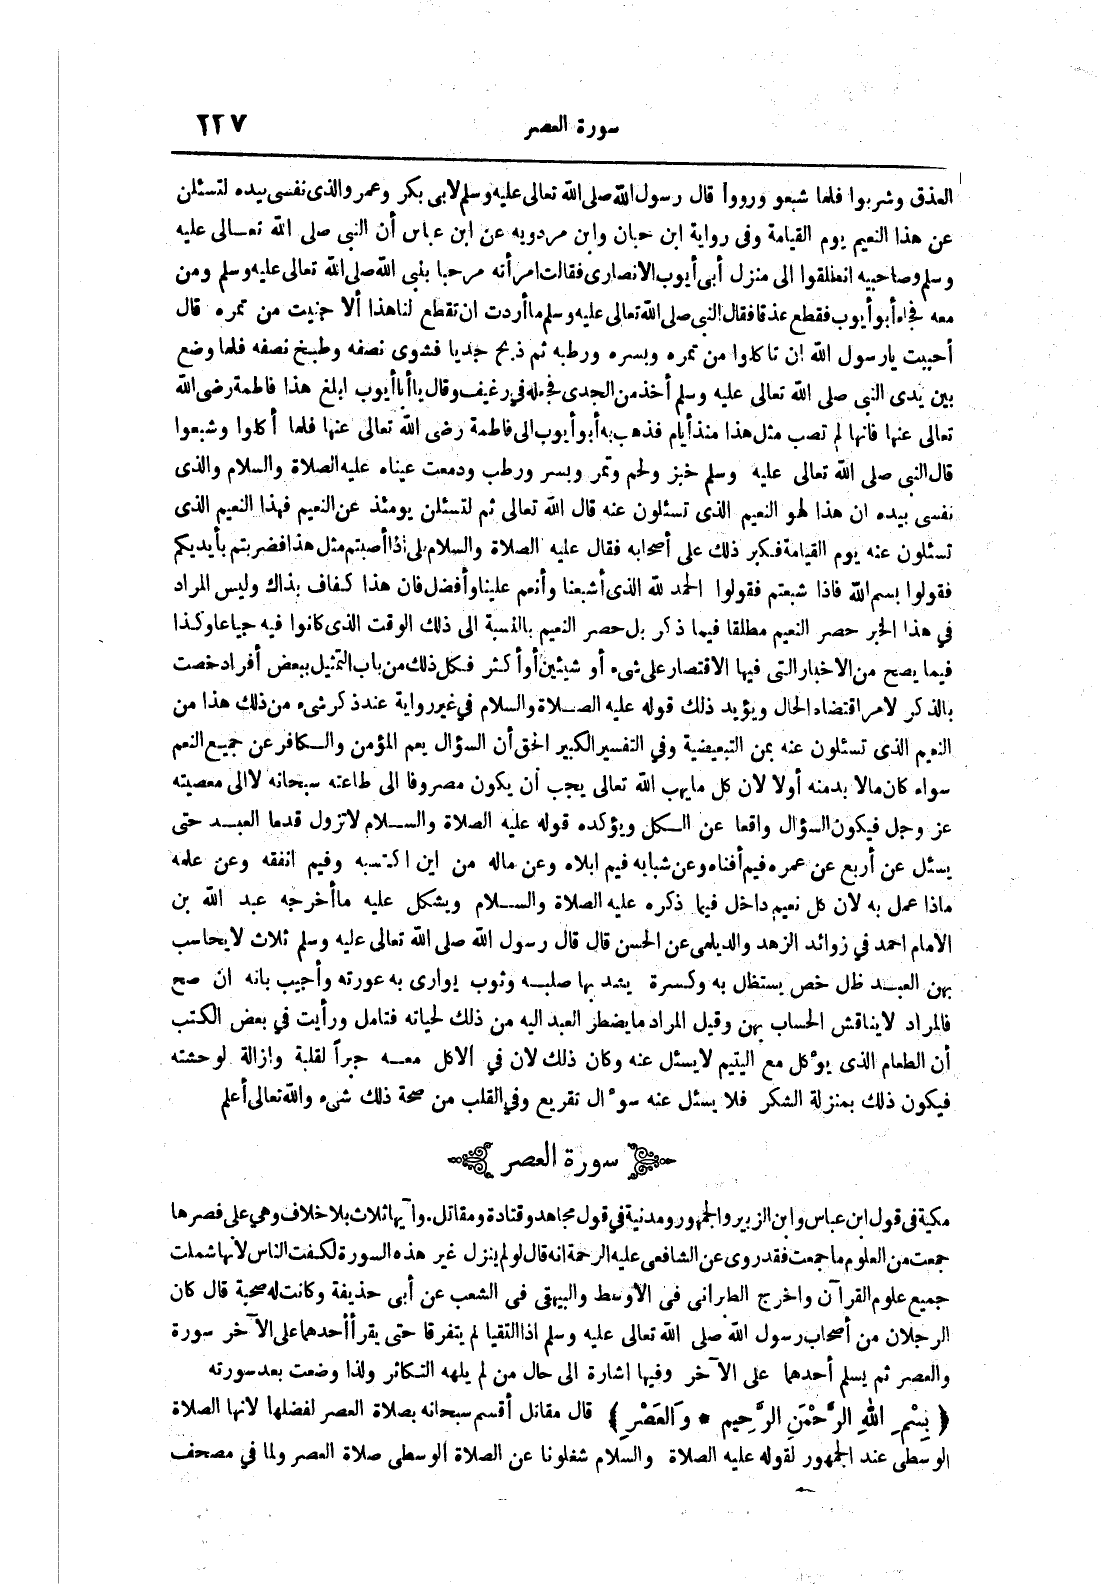 سورة العصر ٢٢٧
العذق وشربوا فلما شبعو ورووا قال رسول الله صلى الله تعالى عليه وسلم لابى بكر وعمر والذى نفسى بيده لتسئلن
عن هذا النعيم يوم القيامة وفى رواية ابن حبان وابن مردويه عن ابن عباس أن النبي صلى الله تعالى عليه
وسلم وصاحبيه انطلقوا الى منزل أبى أيوب الانصارى فقالت امرأته مرحبا بنبى الله صلى الله تعالى عليه وسلم ومن
معه فجاء أبو أيوب فقطع عذقا فقال النبي صلى الله تعالى عليه وسلم ما أردت ان تقطع لنا هذا ألا جنيت من تمره قال
أحببت يارسول الله ان تا كلوا من تمره وبسره ورطبه ثم ذبح جديا فشوى نصفه وطبخ نصفه فلما وضع
بين يدى النبي صلى الله تعالى عليه وسلم أخذ من الجدى فجعله في رغيف وقال يا أبا أيوب ابلغ هذا فاطمة رضى الله
تعالى عنها فانها لم تصب مثل هذا منذ أيام فذهب به أبو أيوب الى فاطمة رضى الله تعالى عنها فلما أكلوا وشبعوا
قال النبي صلى الله تعالى عليه وسلم خبز ولحم وتمر وبسر ورطب ودمعت عيناه عليه الصلاة والسلام والذى
نفسى بيده ان هذا لهو النعيم الذى تسئلون عنه قال الله تعالى ثم لتسئلن يومئذ عن النعيم فهذا النعيم الذى
تسئلون عنه يوم القيامة فكبر ذلك على أصحابه فقال عليه الصلاة والسلام بلى اذا أصبتم مثل هذا فضربتم بأيديكم
فقولوا بسم الله فاذا شبعتم فقولوا الحمد لله الذى أشبعنا وأنعم علينا وأفضل فان هذا كفاف بذاك وليس المراد
في هذا الخبر حصر النعيم مطلقا فيما ذكر بل حصر النعيم بالنسبة الى ذلك الوقت الذى كانوا فيه جياعا وكذا
فيما يصح من الاخبار التى فيها الاقتصار على شىء أو شيئين أو أكثر فكل ذلك من باب التمثيل ببعض أفراد خصت
بالذكر لامر اقتضاه الحال ويؤيد ذلك قوله عليه الصلاة والسلام في غير رواية عند ذكر شىء من ذلك هذا من
النعيم الذى تسئلون عنه بمن التبعيضية وفي التفسير الكبير الحق أن السؤال يعم المؤمن والكافر عن جميع النعم
سواء كان مالا بد منه أولا لان كل ما يهب الله تعالى يجب أن يكون مصروفا الى طاعته سبحانه لا الى معصيته
عز وجل فيكون السؤال واقعا عن الكل ويؤكده قوله عليه الصلاة والسلام لاتزول قدما العبد حتى
يسئل عن أربع عن عمره فيم أفناه وعن شبابه فيم ابلاه وعن ماله من اين اكتسبه وفيم انفقه وعن علمه
ماذا عمل به لان كل نعيم داخل فيما ذكره عليه الصلاة والسلام ويشكل عليه ما أخرجه عبد الله بن
الامام احمد في زوائد الزهد والديلمى عن الحسن قال قال رسول الله صلى الله تعالى عليه وسلم ثلاث لايحاسب
بهن العبد ظل خص يستظل به وكسرة يشد بها صلبه وثوب يوارى به عورته وأجيب بانه ان صح
فالمراد لايناقش الحساب بهن وقيل المراد مايضطر العبد اليه من ذلك لحياته فتامل ورأيت في بعض الكتب
أن الطعام الذى يؤكل مع اليتيم لايسئل عنه وكان ذلك لان في الاكل معه جبراً لقلبة وازالة لوحشته
فيكون ذلك بمنزلة الشكر فلا يسئل عنه سوءال تقريع وفي القلب من صحة ذلك شىء والله تعالى أعلم
سورة العصر
مكية فى قول ابن عباس وابن الزبير والجمهور ومدنية في قول مجاهد وقتادة ومقاتل. وآيها ثلاث بلا خلاف وهى على قصرها
جمعت من العلوم ما جمعت فقد روى عن الشافعى عليه الرحمة انه قال لو لم ينزل غير هذه السورة لكفت الناس لأنها شملت
جميع علوم القرآن واخرج الطبرانى فى الأوسط والبيهقى فى الشعب عن أبى حذيفة وكانت له صحبة قال كان
الرجلان من أصحاب رسول الله صلى الله تعالى عليه وسلم اذا التقيا لم يتفرقا حتى يقرأ أحدهما على الآخر سورة
والعصر ثم يسلم أحدهما على الآخر وفيها اشارة الى حال من لم يلهه التكاثر ولذا وضعت بعد سورته
﴿ بِسْمِ اللهِ الرَّحْمٰنِ الرَّحِيمِ * وَالعَصْرِ ﴾ قال مقاتل أقسم سبحانه بصلاة العصر لفضلها لانها الصلاة
الوسطى عند الجمهور لقوله عليه الصلاة والسلام شغلونا عن الصلاة الوسطى صلاة العصر ولما في مصحف